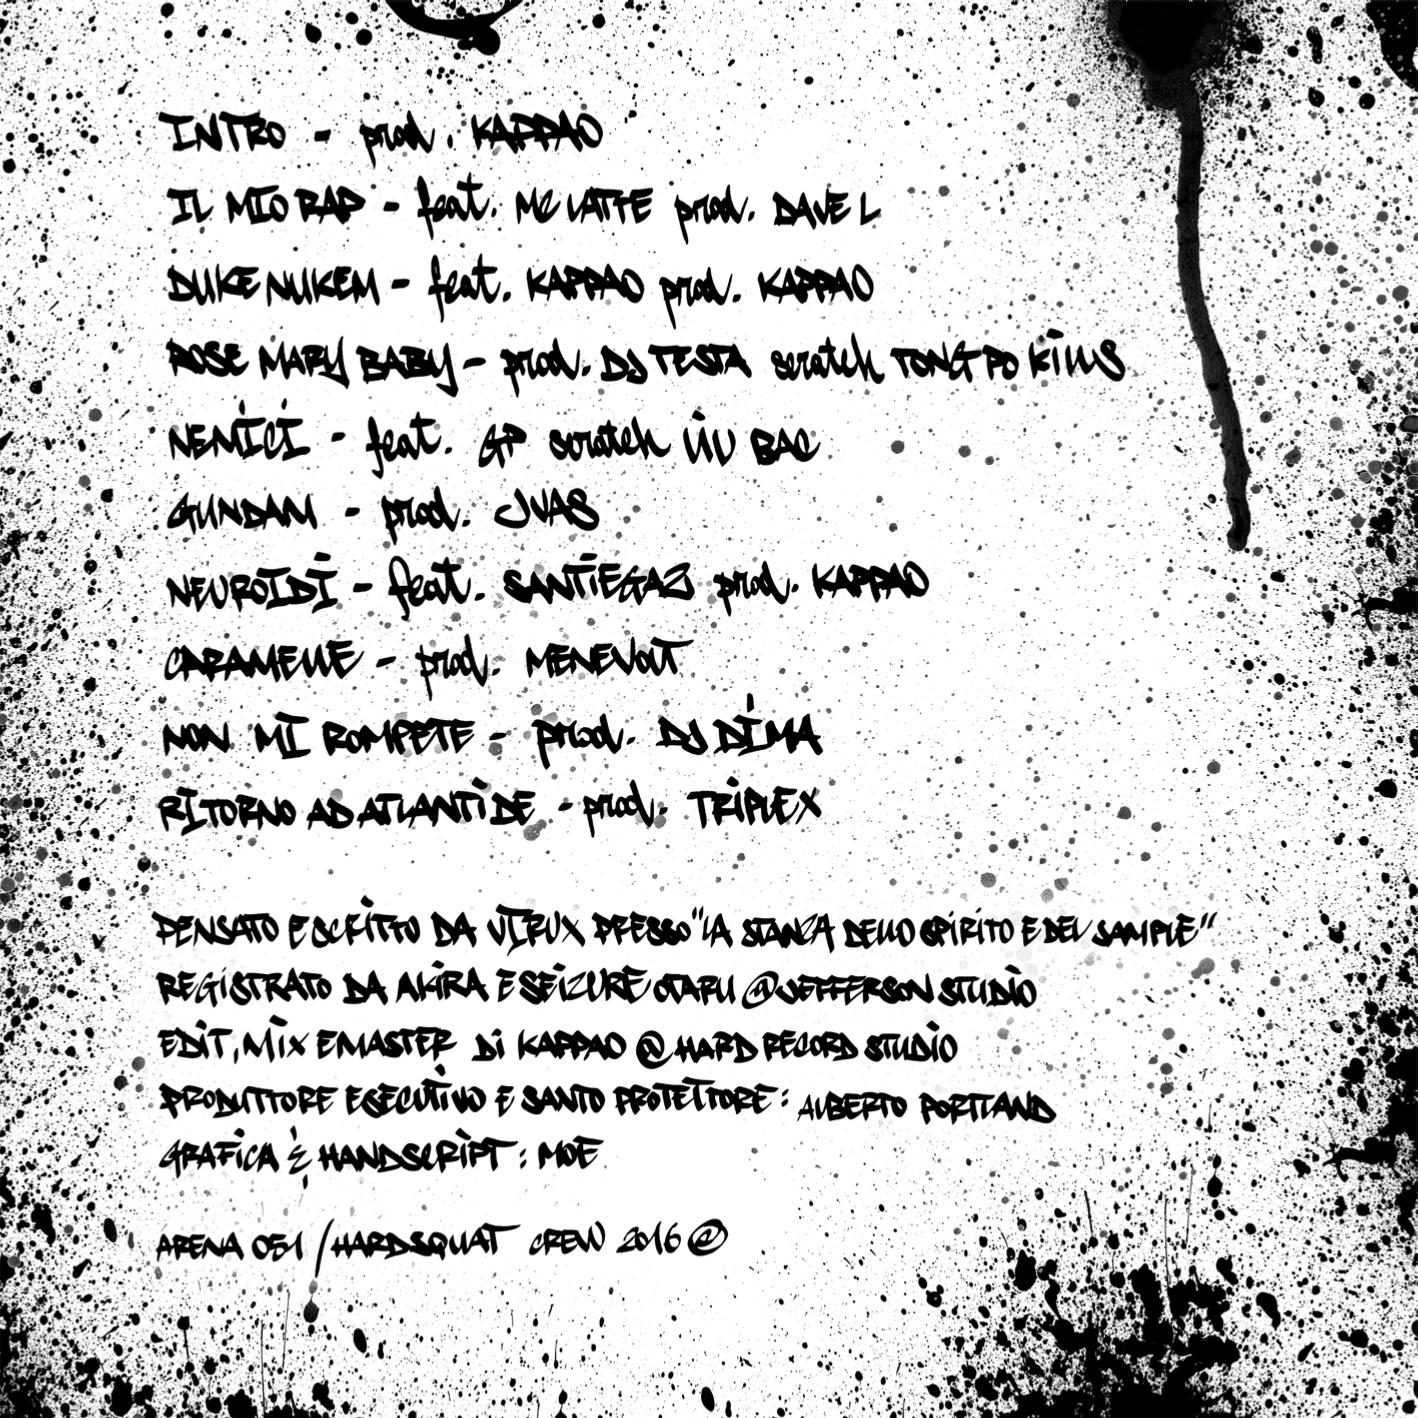 INTRO - prod. KAPPAO
IL MIO RAP - feat. MC LATTE prod. DAVE L
DUKE NUKEM - feat. KAPPAO prod. KAPPAO
ROSE MARY BABY - prod. DJ TESTA scratch TONG PO KILLS
NEMICI - feat. GP scratch LIL BAC
GUNDAM - prod. JVAS
NEUROIDI - feat. SANTIEGAZ prod. KAPPAO
CARAMELLE - prod. MENEVOLT
NON MI ROMPETE - prod. DJ DIMA
RITORNO AD ATLANTIDE - prod. TRIPLEX
PENSATO E SCRITTO DA VIRUX PRESSO "LA STANZA DELLO SPIRITO E DEL SAMPLE"
REGISTRATO DA AKIRA E SEIZURE OTARU @ JEFFERSON STUDIO
EDIT, MIX E MASTER DI KAPPAO @ HARD RECORD STUDIO
PRODUTTORE ESECUTIVO E SANTO PROTETTORE: ALBERTO PORTLAND
GRAFICA & HANDSCRIPT: MOE
ARENA 051 / HARDSQUAT CREW 2016 @